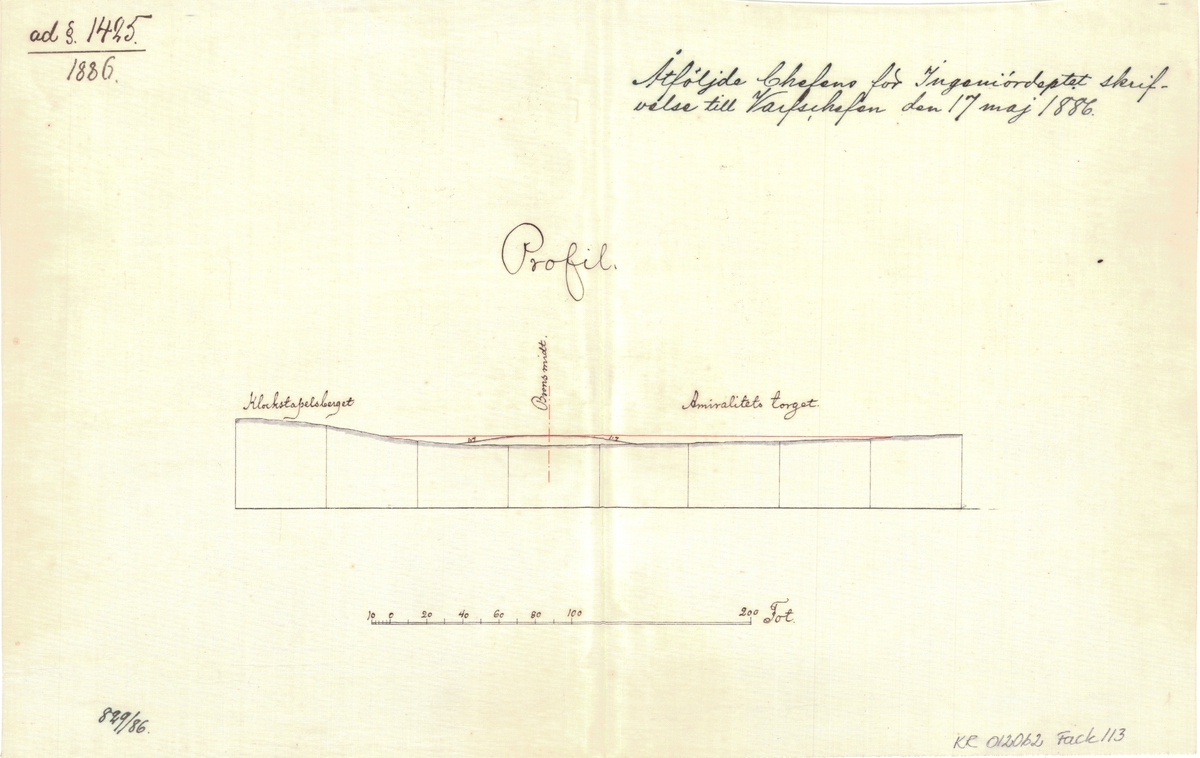 ad §. 1425.
1886.
Åtföljde Chefens för Ingeniördeptet skrif-
velse till Varfschefen den 17 maj 1886.
Profil.
Bronsmidt.
Klockstapelsberget
Amiralitets torget.
10 0 20 40 60 80 100 200 Fot.
829/86.
KR 012062 Fack 113